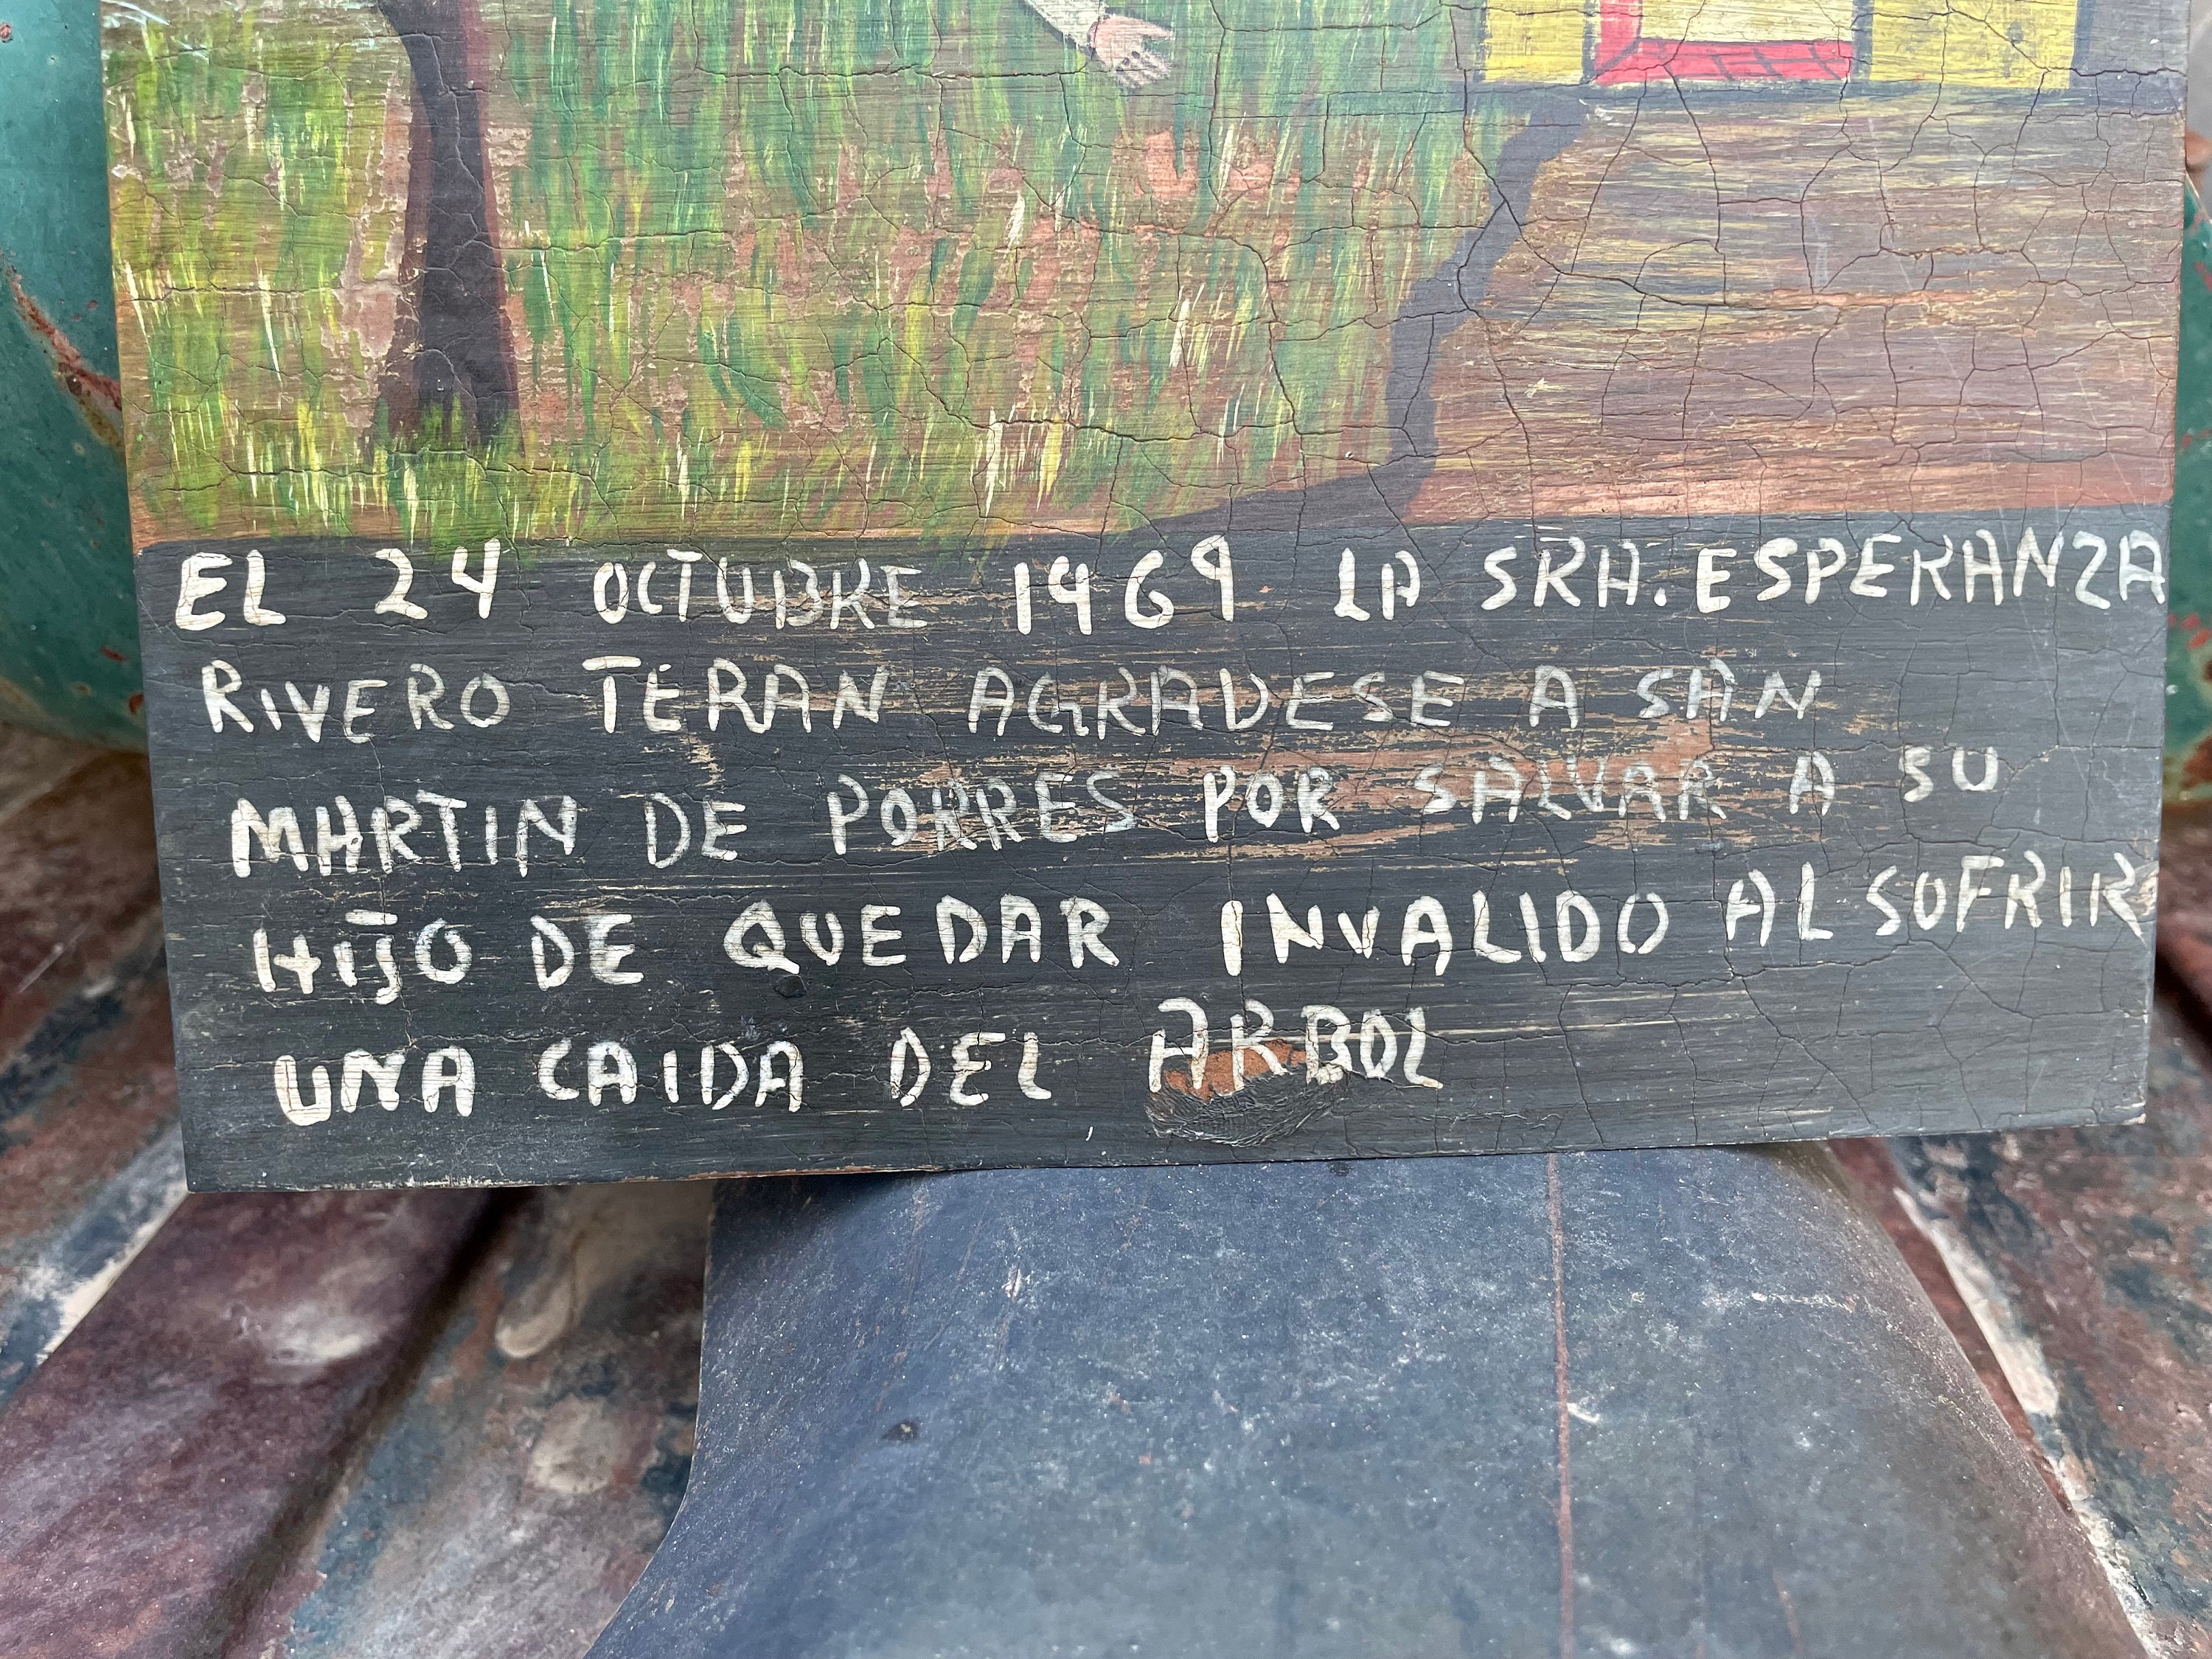 EL 24 OCTUBRE 1969 LA SRA. ESPERANZA
RIVERO TERAN AGRADESE A SAN
MARTIN DE PORRES POR SALVAR A SU
HIJO DE QUEDAR INVALIDO AL SOFRIR
UNA CAIDA DEL ARBOL